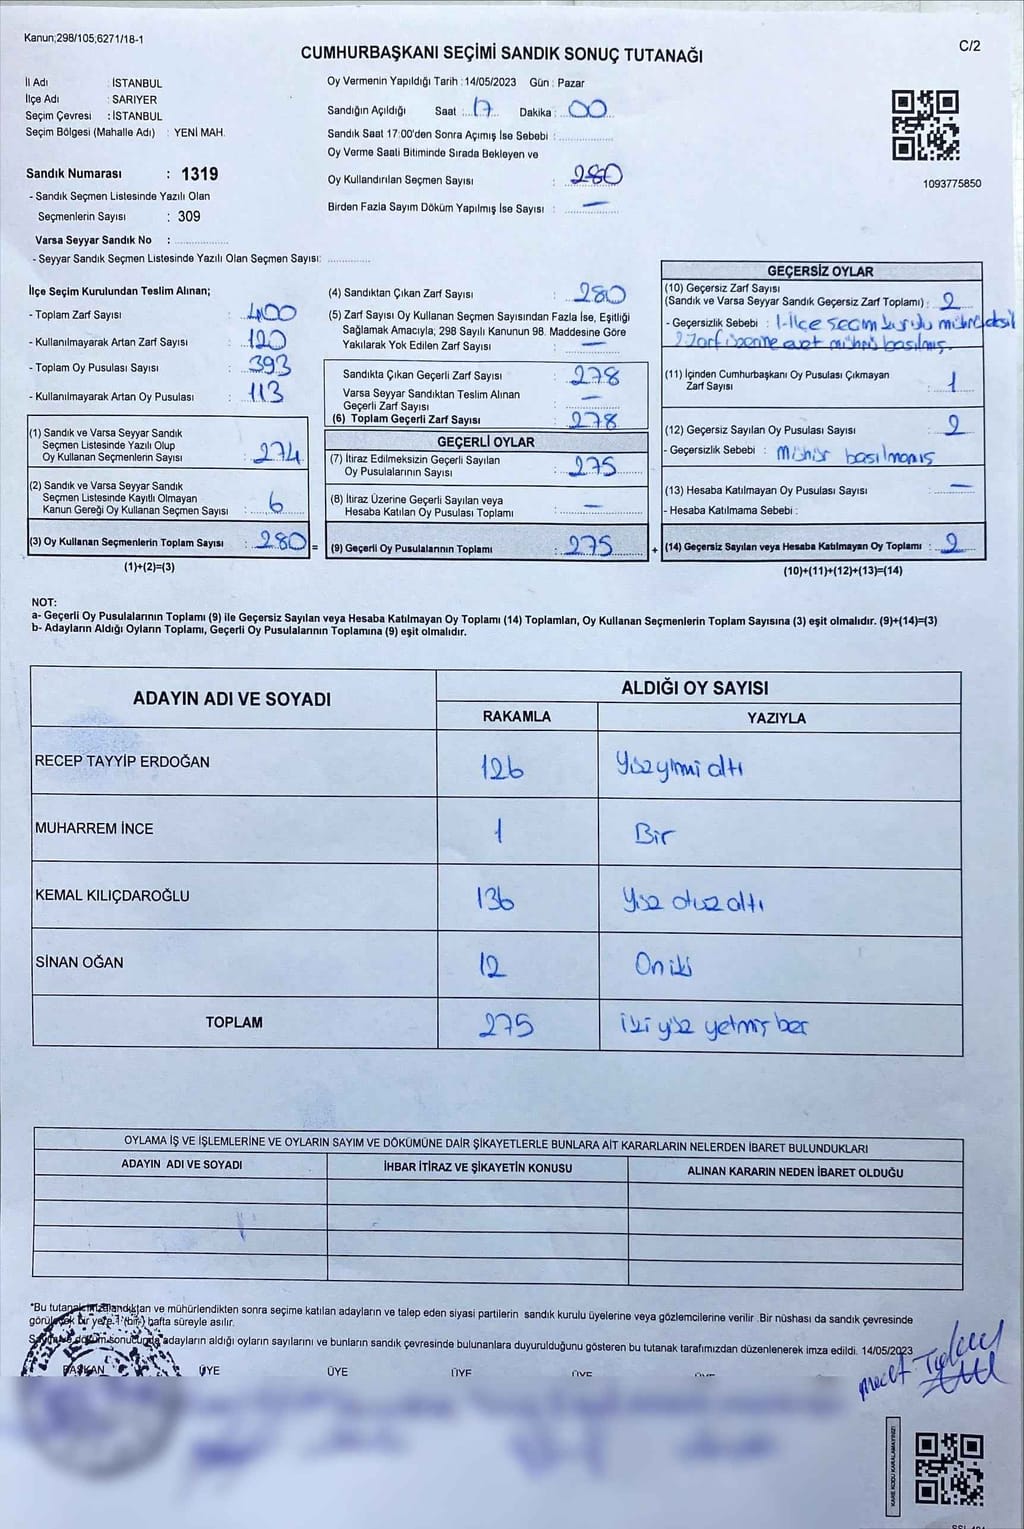 Kanun;298/105;6271/18-1
C/2
CUMHURBAŞKANI SEÇİMİ SANDIK SONUÇ TUTANAĞI
İl Adı : İSTANBUL
İlçe Adı : SARIYER
Seçim Çevresi : İSTANBUL
Seçim Bölgesi (Mahalle Adı) : YENİ MAH.
Sandık Numarası : 1319
- Sandık Seçmen Listesinde Yazılı Olan
Seçmenlerin Sayısı : 309
Varsa Seyyar Sandık No : ..................
- Seyyar Sandık Seçmen Listesinde Yazılı Olan Seçmen Sayısı: ..............
Oy Vermenin Yapıldığı Tarih :14/05/2023 Gün : Pazar
Sandığın Açıldığı Saat : 17 Dakika : 00
Sandık Saat 17:00'den Sonra Açımış İse Sebebi : ..................
Oy Verme Saati Bitiminde Sırada Bekleyen ve
Oy Kullandırılan Seçmen Sayısı : 280
Birden Fazla Sayım Döküm Yapılmış İse Sayısı : —
1093775850
İlçe Seçim Kurulundan Teslim Alınan;
- Toplam Zarf Sayısı : 400
- Kullanılmayarak Artan Zarf Sayısı : 120
- Toplam Oy Pusulası Sayısı : 393
- Kullanılmayarak Artan Oy Pusulası : 113
(1) Sandık ve Varsa Seyyar Sandık
Seçmen Listesinde Yazılı Olup
Oy Kullanan Seçmenlerin Sayısı : 274
(2) Sandık ve Varsa Seyyar Sandık
Seçmen Listesinde Kayıtlı Olmayan
Kanun Gereği Oy Kullanan Seçmen Sayısı : 6
(3) Oy Kullanan Seçmenlerin Toplam Sayısı : 280 =
(1)+(2)=(3)
(4) Sandıktan Çıkan Zarf Sayısı : 280
(5) Zarf Sayısı Oy Kullanan Seçmen Sayısından Fazla İse, Eşitliği
Sağlamak Amacıyla; 298 Sayılı Kanunun 98. Maddesine Göre
Yakılarak Yok Edilen Zarf Sayısı : —
Sandıkta Çıkan Geçerli Zarf Sayısı : 278
Varsa Seyyar Sandıktan Teslim Alınan
Geçerli Zarf Sayısı : —
(6) Toplam Geçerli Zarf Sayısı : 278
GEÇERLİ OYLAR
(7) İtiraz Edilmeksizin Geçerli Sayılan
Oy Pusulalarının Sayısı : 275
(8) İtiraz Üzerine Geçerli Sayılan veya
Hesaba Katılan Oy Pusulası Toplamı : —
(9) Geçerli Oy Pusulalarının Toplamı : 275 +
GEÇERSİZ OYLAR
(10) Geçersiz Zarf Sayısı
(Sandık ve Varsa Seyyar Sandık Geçersiz Zarf Toplamı) : 2
- Geçersizlik Sebebi : 1-İlçe seçim kurulu mührü eksik
2 zarf üzerine evet mührü basılmış.
(11) İçinden Cumhurbaşkanı Oy Pusulası Çıkmayan
Zarf Sayısı : 1
(12) Geçersiz Sayılan Oy Pusulası Sayısı : 2
- Geçersizlik Sebebi : Mühür basılmamış
(13) Hesaba Katılmayan Oy Pusulası Sayısı : —
- Hesaba Katılmama Sebebi :
(14) Geçersiz Sayılan veya Hesaba Katılmayan Oy Toplamı : 2
(10)+(11)+(12)+(13)=(14)
NOT:
a- Geçerli Oy Pusulalarının Toplamı (9) ile Geçersiz Sayılan veya Hesaba Katılmayan Oy Toplamı (14) Toplamları, Oy Kullanan Seçmenlerin Toplam Sayısına (3) eşit olmalıdır. (9)+(14)=(3)
b- Adayların Aldığı Oyların Toplamı, Geçerli Oy Pusulalarının Toplamına (9) eşit olmalıdır.
ADAYIN ADI VE SOYADI
ALDIĞI OY SAYISI
RAKAMLA YAZIYLA
RECEP TAYYİP ERDOĞAN 126 Yüzyirmi altı
MUHARREM İNCE 1 Bir
KEMAL KILIÇDAROĞLU 136 Yüz otuz altı
SİNAN OĞAN 12 On iki
TOPLAM 275 iki yüz yetmiş beş
OYLAMA İŞ VE İŞLEMLERİNE VE OYLARIN SAYIM VE DÖKÜMÜNE DAİR ŞİKAYETLERLE BUNLARA AİT KARARLARIN NELERDEN İBARET BULUNDUKLARI
ADAYIN ADI VE SOYADI İHBAR İTİRAZ VE ŞİKAYETİN KONUSU ALINAN KARARIN NEDEN İBARET OLDUĞU
*Bu tutanak imzalandıktan ve mühürlendikten sonra seçime katılan adayların ve talep eden siyasi partilerin sandık kurulu üyelerine veya gözlemcilerine verilir .Bir nüshası da sandık çevresinde
görülecek bir yere 1 (bir) hafta süreyle asılır.
Sayım ve döküm sonucunda adayların aldığı oyların sayılarını ve bunların sandık çevresinde bulunanlara duyurulduğunu gösteren bu tutanak tarafımızdan düzenlenerek imza edildi. 14/05/2023
BAŞKAN ÜYE ÜYE ÜYE ÜYE ÜYE
KARE KODU KARALAMAYINIZ!